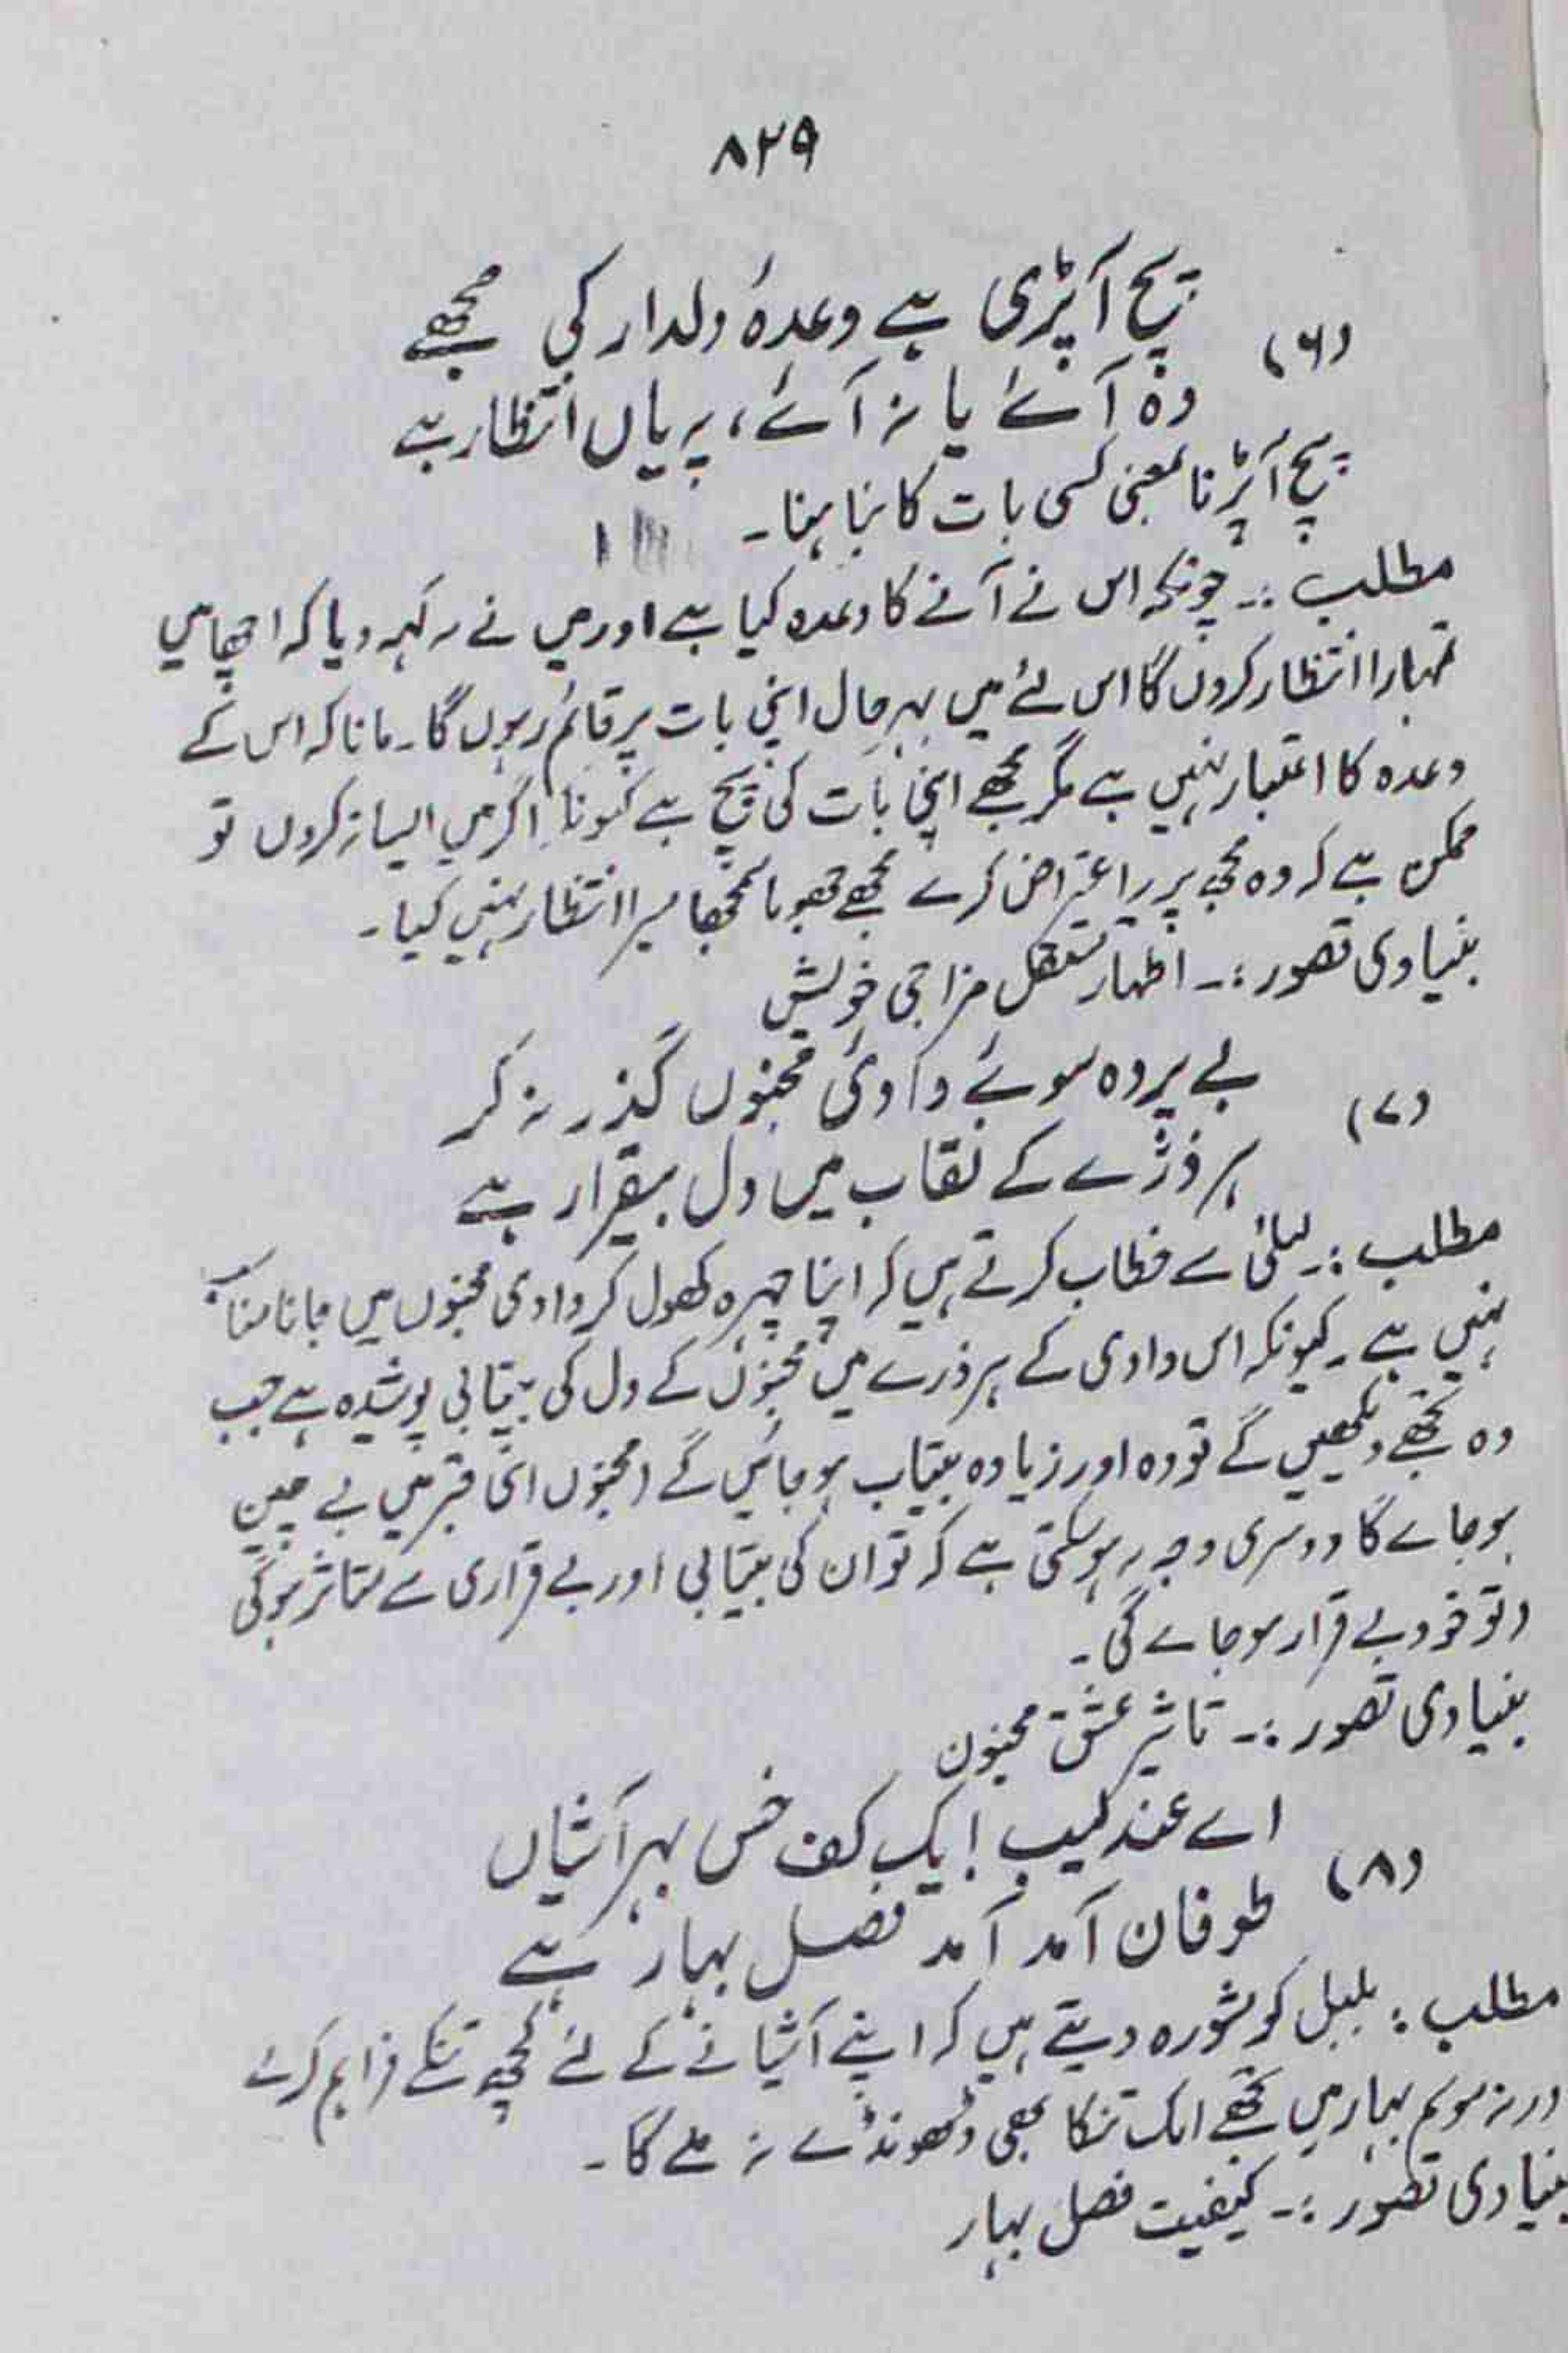 ۸۲۹
پچ آپڑی ہے وعدۂ دلدار کی مجھے
(۶)
وہ آئے یا نہ آئے، پہ یاں انتظار ہے
پچ آپڑنا بمعنی کسی بات کا نباہنا۔
مطلب :۔ چونکہ اس نے آنے کا وعدہ کیا ہے اور میں نے یہ کہہ دیا کہ اچھا میں
تمہارا انتظار کروں گا اس لئے میں بہرحال اپنی بات پر قائم رہوں گا۔ مانا کہ اس کے
وعدہ کا اعتبار نہیں ہے مگر مجھے اپنی بات کی پچ ہے کیونکہ اگر میں ایسا نہ کروں تو
ممکن ہے کہ وہ مجھ پر یہ اعتراض کرے مجھے جھوٹا سمجھا میرا انتظار نہیں کیا۔
بنیادی تصور :۔ اظہار مستقل مزاجی خویش
(۷)
بے پردہ سوئے وادئ مجنوں گذر نہ کر
ہر ذرّے کے نقاب میں دل بیقرار ہے
مطلب :۔ لیلیٰ سے خطاب کرتے ہیں کہ اپنا چہرہ کھول کر وادی مجنوں میں جانا مناسب
نہیں ہے۔ کیونکہ اس وادی کے ہر ذرے میں مجنوں کے دل کی بیتابی پوشیدہ ہے جب
وہ تجھے دیکھیں گے تو وہ اور زیادہ بیتاب ہو جائیں گے (مجنوں اپنی قبر میں بے چین
ہو جائے گا دوسری وجہ یہ ہو سکتی ہے کہ تو ان کی بیتابی اور بے قراری سے متاثر ہوگی
و تو خود بے قرار ہو جائے گی۔
بنیادی تصور :۔ تاثیر عشق مجنون
(۸)
اے عندلیب! یک کف خس بہر آشیاں
طوفان آمد آمد فصل بہار ہے
مطلب : بلبل کو مشورہ دیتے ہیں کہ اپنے آشیانے کے لئے کچھ تنکے فراہم کرلے
ورنہ موسم بہار میں تجھے ایک تنکا بھی ڈھونڈے نہ ملے گا۔
بنیادی تصور :۔ کیفیت فصل بہار